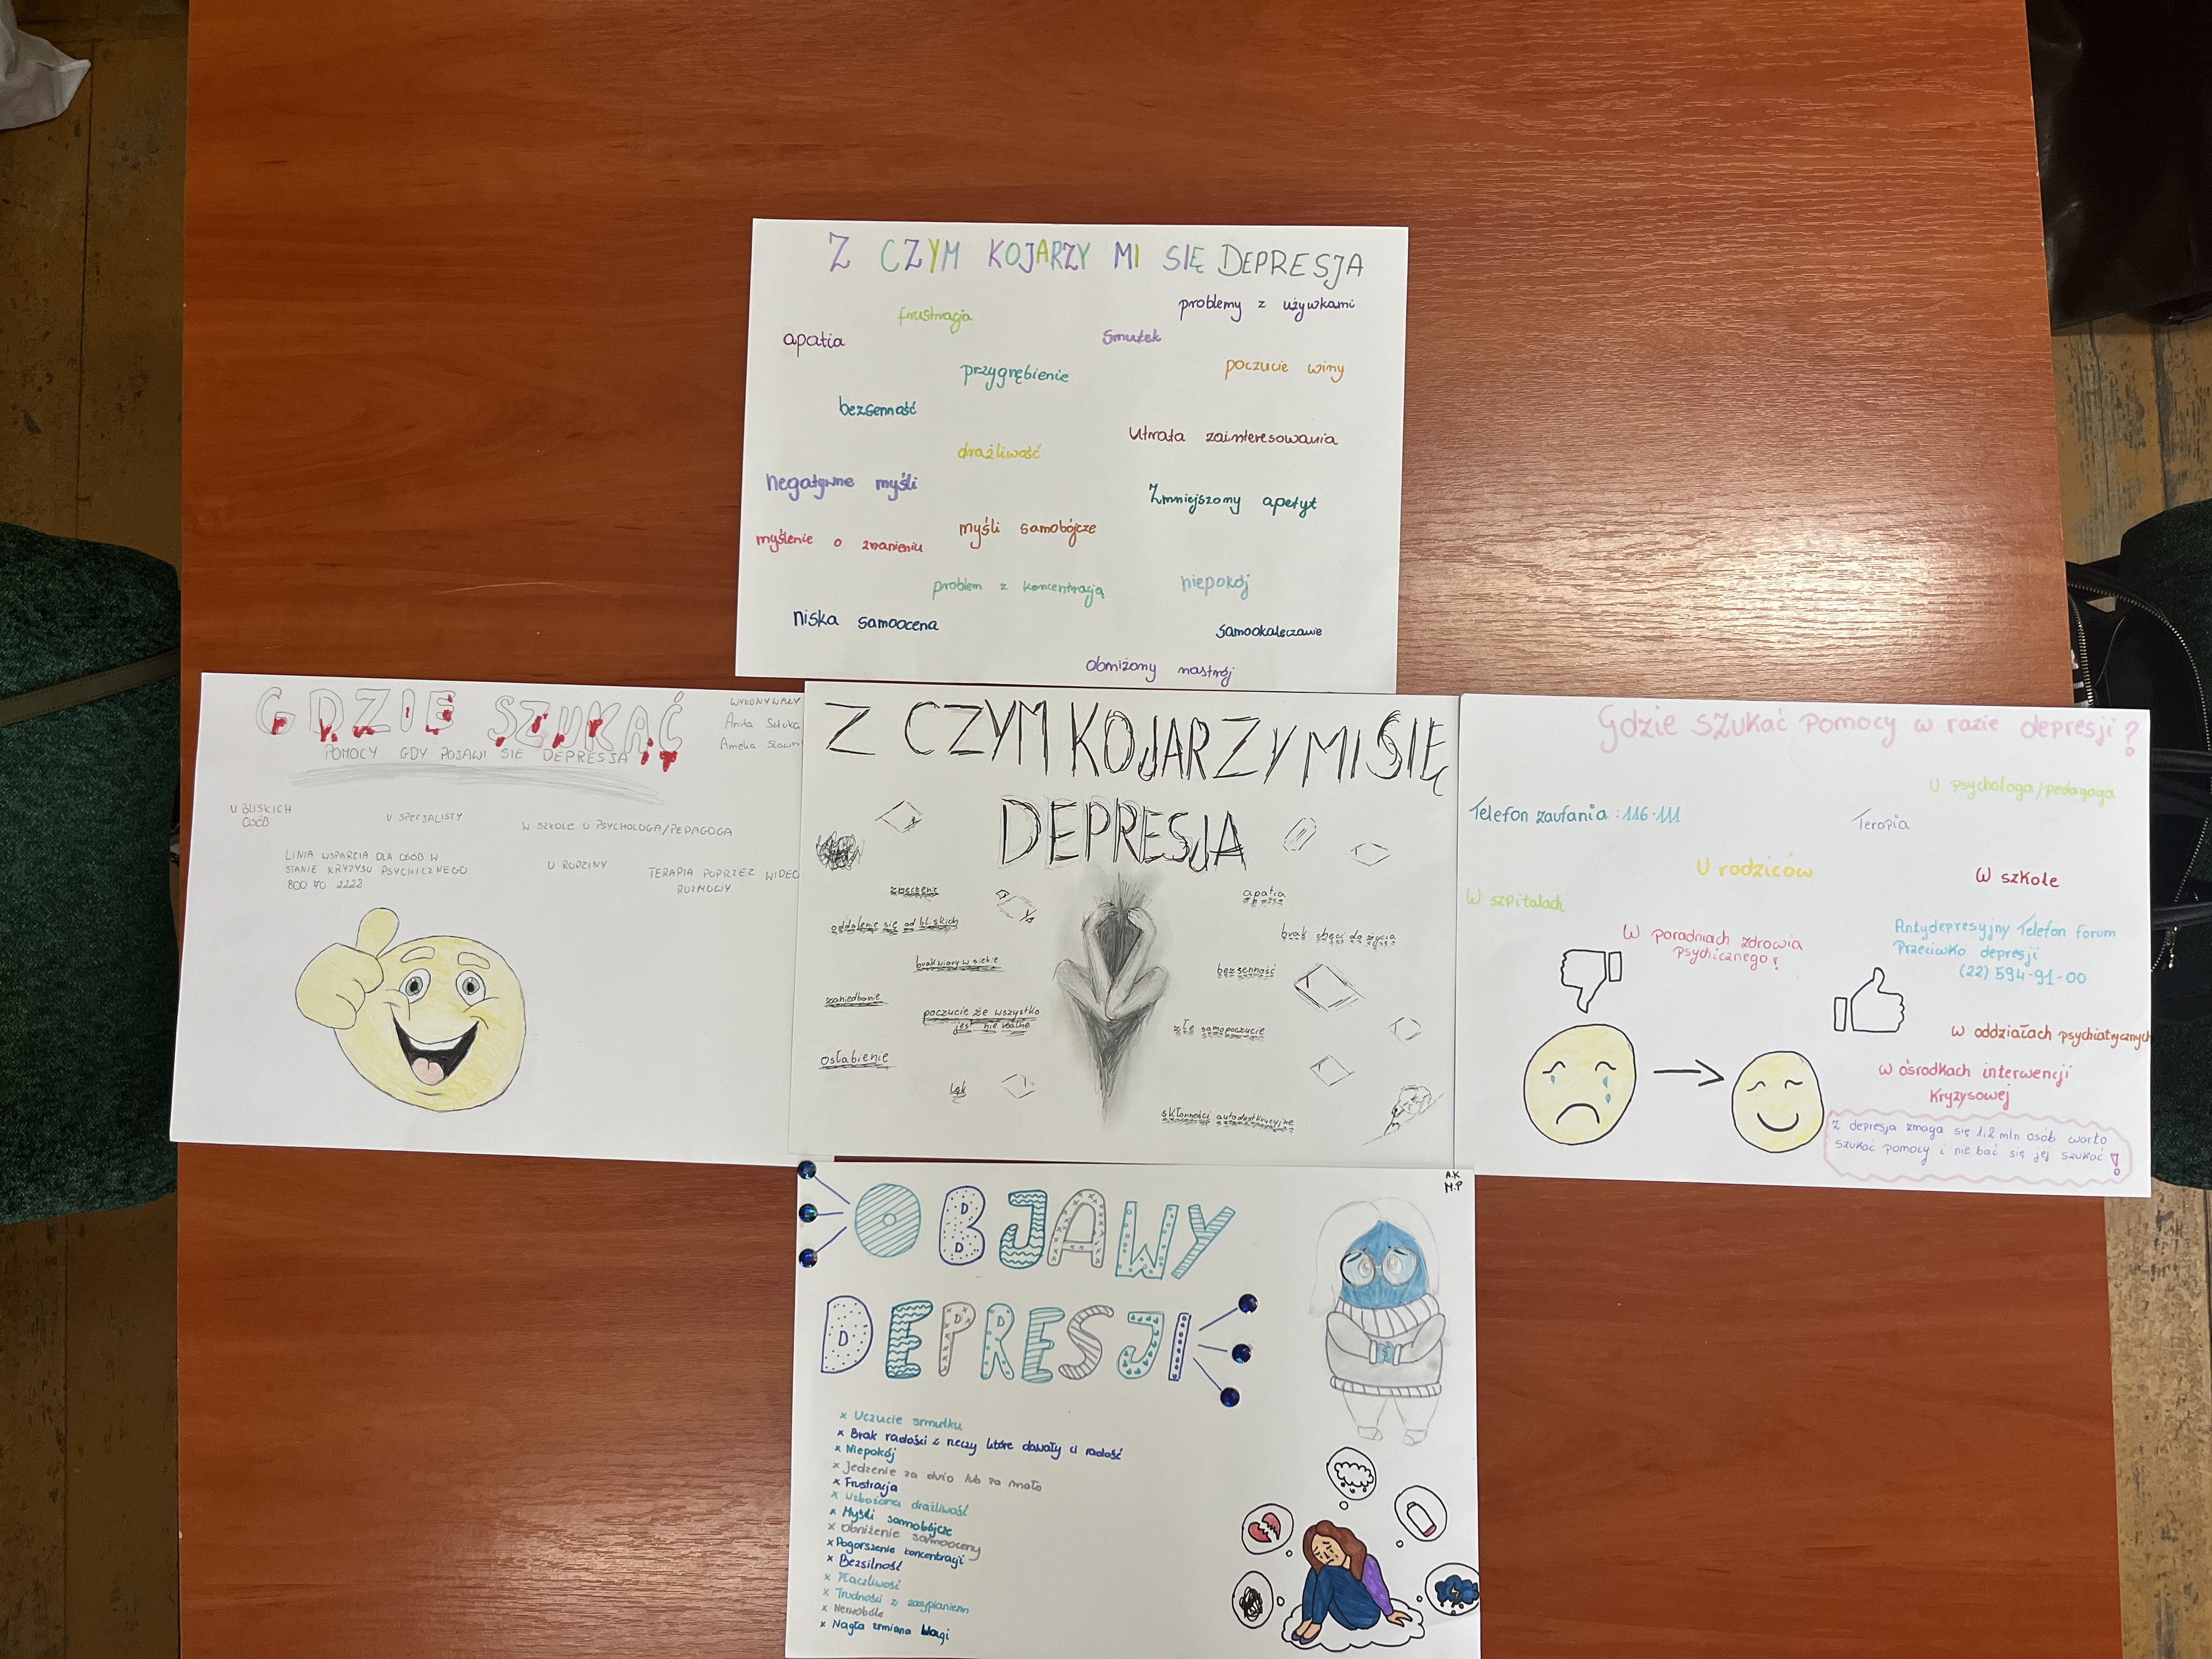 Z CZYM KOJARZY MI SIĘ DEPRESJA
problemy z używkami
frustracja
apatia
smutek
przygnębienie
poczucie winy
bezsenność
Utrata zainteresowania
drażliwość
negatywne myśli
Zmniejszony apetyt
myśli samobójcze
myślenie o zranieniu
problem z koncentracją
niepokój
niska samoocena
samookaleczanie
obniżony nastrój
GDZIE SZUKAĆ
POMOCY GDY POJAWI SIE DEPRESJA
WYKONYWAŁY
Anita
Amelia
U BLISKICH
OSÓB
U SPECJALISTY
W SZKOLE U PSYCHOLOGA/PEDAGOGA
LINIA WSPARCIA DLA OSÓB W
STANIE KRYZYSU PSYCHICZNEGO
800 70 2222
U RODZINY
TERAPIA POPRZEZ WIDEO
ROZMOWY
Z CZYM KOJARZY MI SIĘ
DEPRESJA
zmęczenie
apatia
oddalenie się od bliskich
brak chęci do życia
brak wiary w siebie
bezsenność
zaniedbanie
poczucie że wszystko
jest nie realne
złe samopoczucie
osłabienie
lęk
skłonności autodestrukcyjne
Gdzie szukać pomocy w razie depresji?
U psychologa/pedagoga
Telefon zaufania : 116-111
Terapia
U rodziców
W szkole
W szpitalach
W poradniach zdrowia
psychicznego!
Antydepresyjny Telefon forum
Przeciwko depresji
(22) 594-91-00
w oddziałach psychiatrycznych
w ośrodkach interwencji
kryzysowej
Z depresja zmaga się 1,2 mln osób warto
szukać pomocy i nie bać się jej szukać!
A.K
M.P
OBJAWY
DEPRESJI
x Uczucie smutku
x Brak radości z rzeczy które dawały ci radość
x Niepokój
x Jedzenie za dużo lub za mało
x Frustracja
x Wzbożona drażliwość
x Myśli samobójcze
x Obniżenie samooceny
x Pogorszenie koncentracji
x Bezsilność
x Płaczliwość
x Trudności z zasypianiem
x Nerwobóle
x Nagła zmiana Wagi